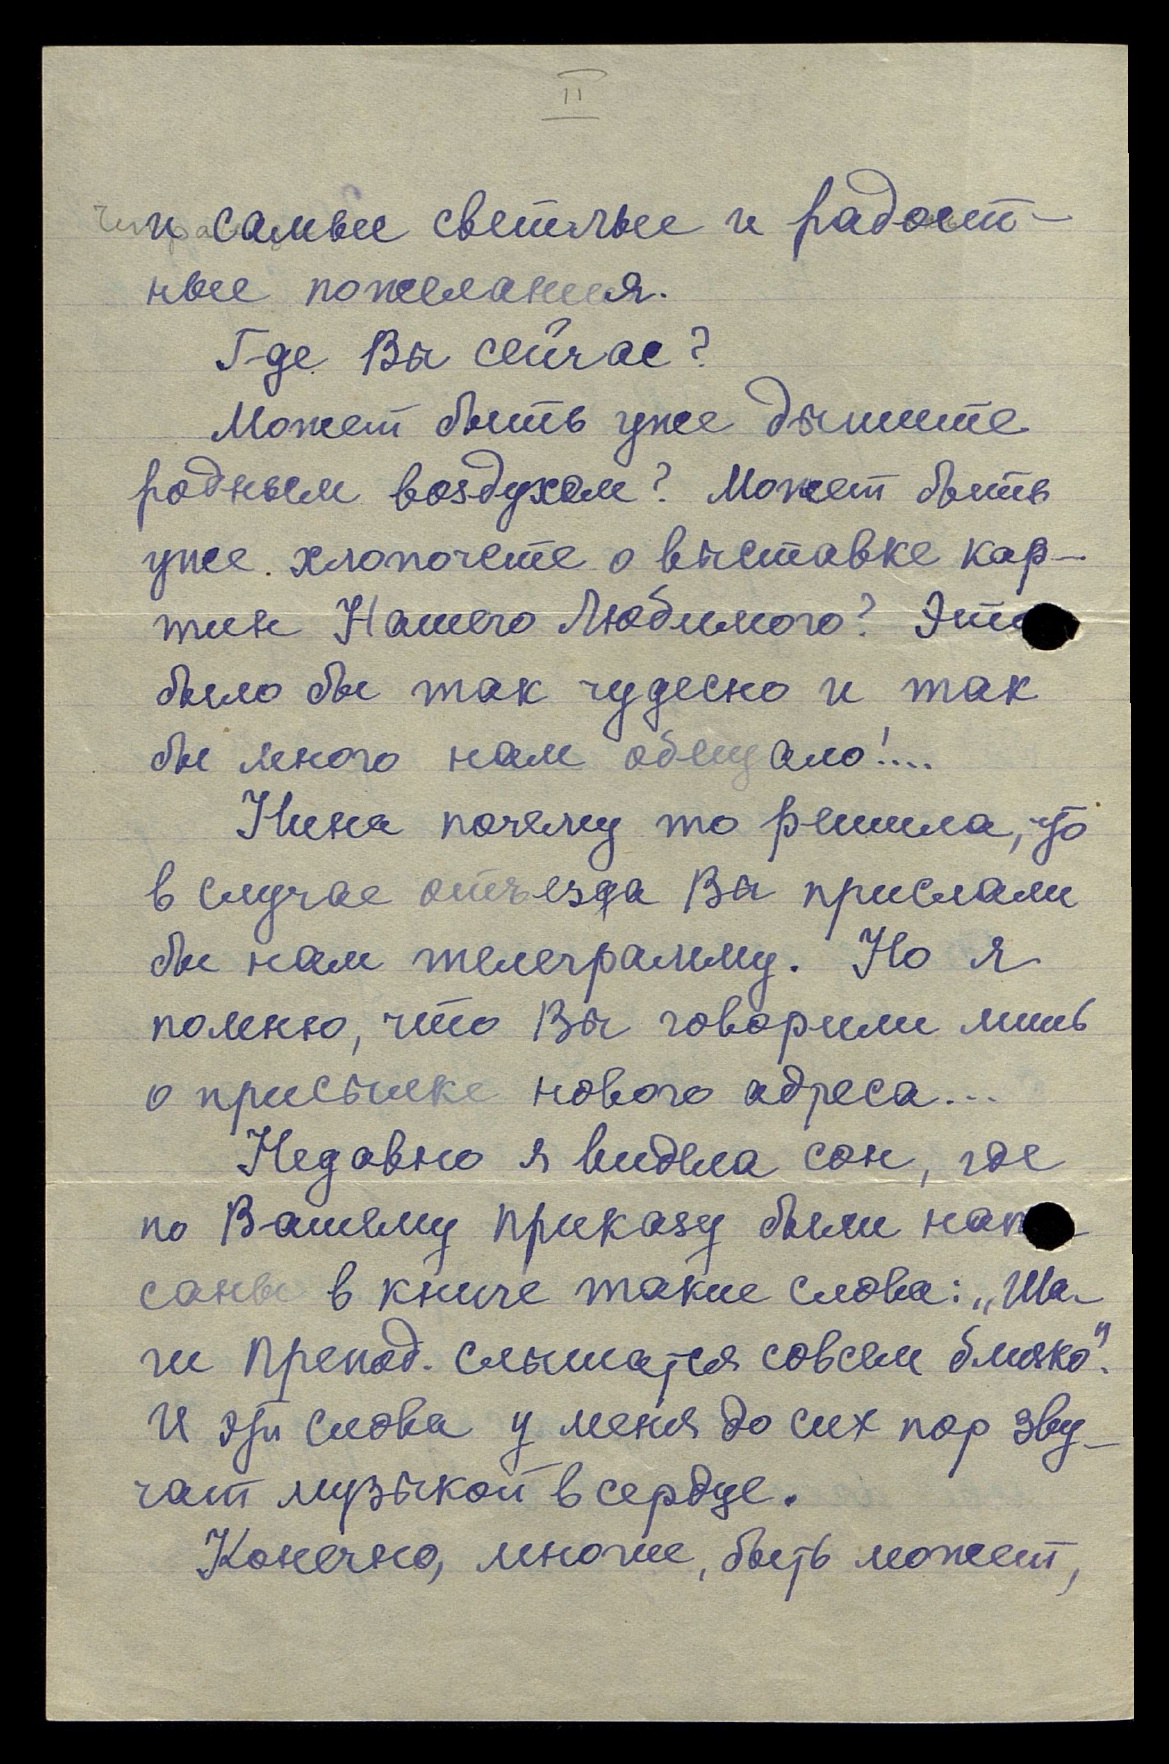 II
и самые светлые и радост-
ные пожелания.
Где Вы сейчас?
Может быть уже дышите
родным воздухом? Может быть
уже хлопочете о выставке кар-
тин Нашего Любимого? Это
было бы так чудесно и так
бы много нам обещало!....
Нина почему то решила, что
в случае отъезда Вы прислали
бы нам телеграмму. Но я
помню, что Вы говорили лишь
о присылке нового адреса...
Недавно я видела сон, где
по Вашему приказу были нап
саны в книге такие слова: „Ша-
ги Препод. слышатся совсем близко".
И эти слова у меня до сих пор зву-
чат музыкой в сердце.
Конечно, многие, быть может,